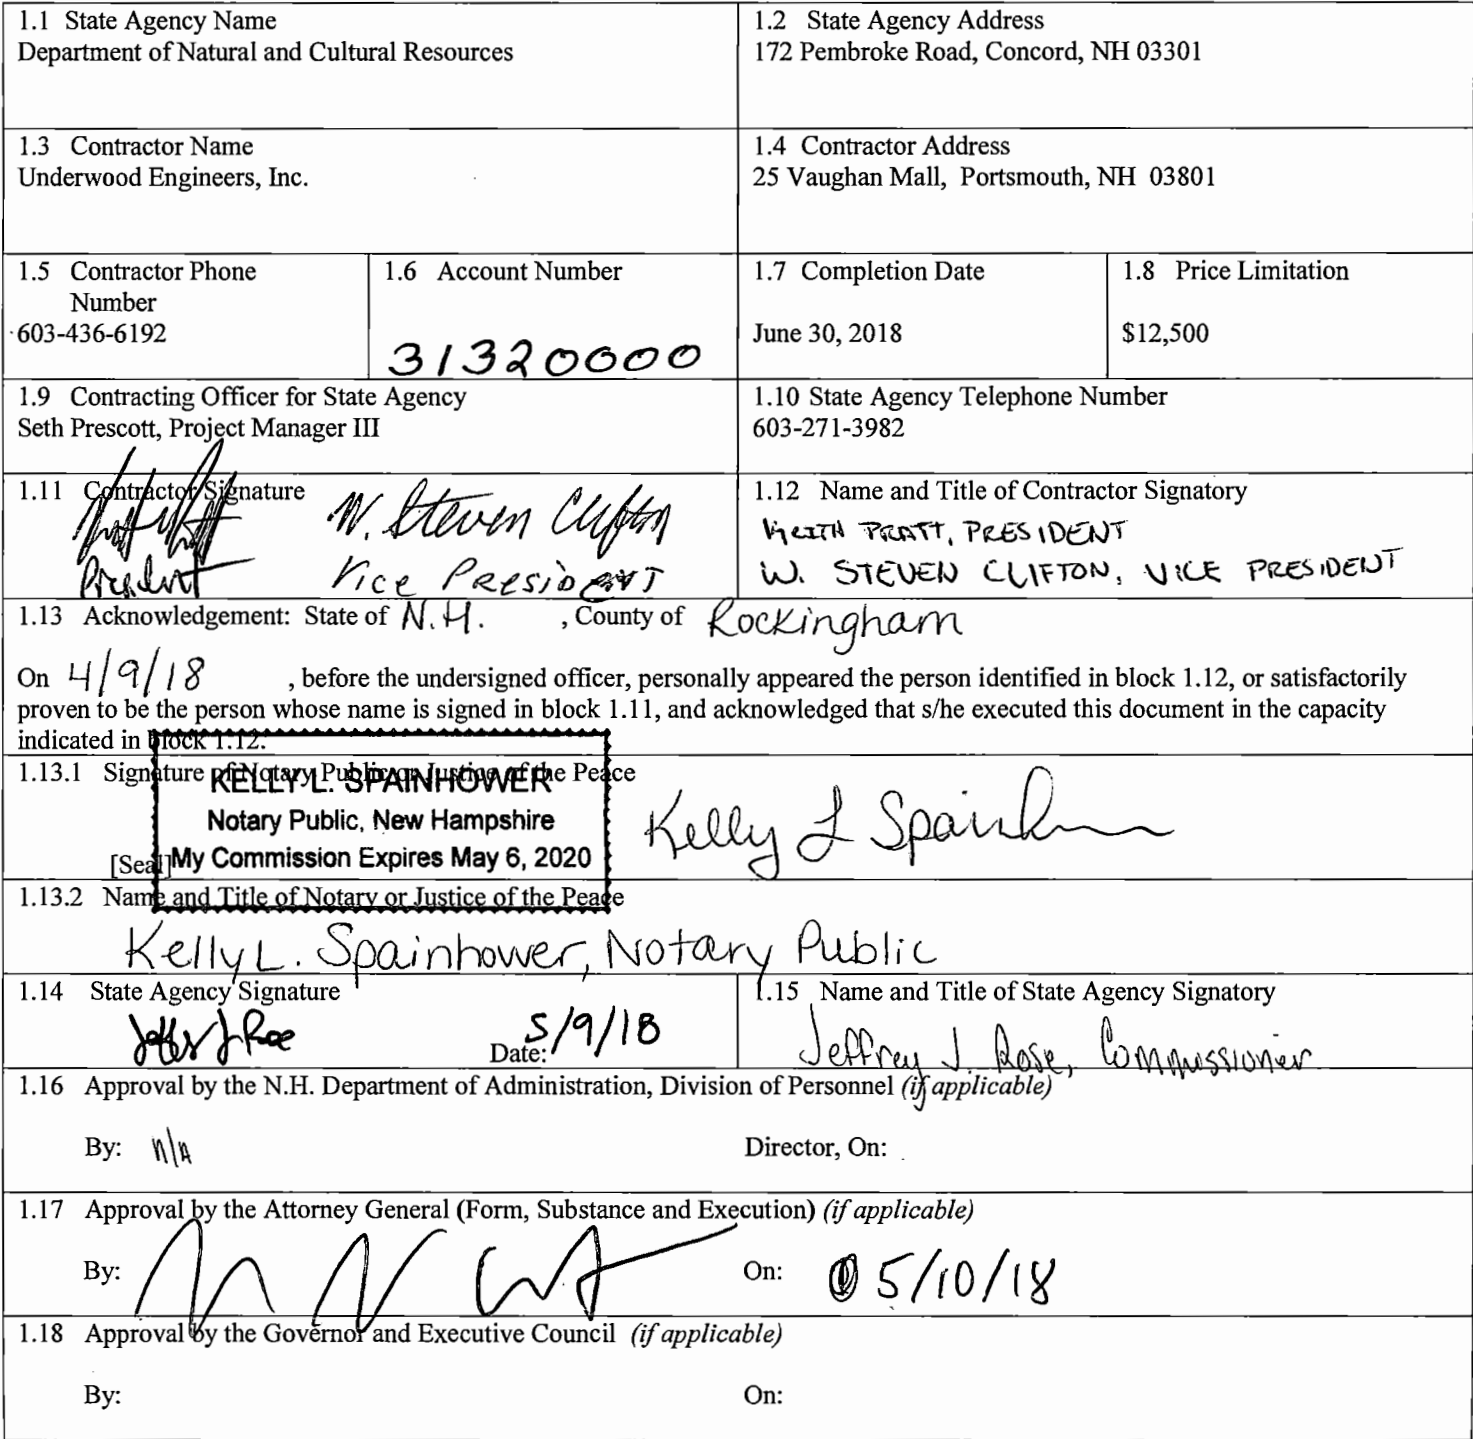 1.1 State Agency Name
Department of Natural and Cultural Resources
1.2 State Agency Address
172 Pembroke Road, Concord, NH 03301
1.3 Contractor Name
Underwood Engineers, Inc.
1.4 Contractor Address
25 Vaughan Mall, Portsmouth, NH 03801
1.5 Contractor Phone
Number
603-436-6192
1.6 Account Number
31320000
1.7 Completion Date
June 30, 2018
1.8 Price Limitation
$12,500
1.9 Contracting Officer for State Agency
Seth Prescott, Project Manager III
1.10 State Agency Telephone Number
603-271-3982
1.11 Contractor Signature
W. Steven Clifton
President
Vice PRESIDENT
1.12 Name and Title of Contractor Signatory
KEITH PRATT, PRESIDENT
W. STEVEN CLIFTON, VICE PRESIDENT
1.13 Acknowledgement: State of N.H. , County of Rockingham
On 4/9/18 , before the undersigned officer, personally appeared the person identified in block 1.12, or satisfactorily
proven to be the person whose name is signed in block 1.11, and acknowledged that s/he executed this document in the capacity
indicated in block 1.12.
1.13.1 Signature of Notary Public or Justice of the Peace
KELLY L. SPAINHOWER
Notary Public, New Hampshire
[Seal] My Commission Expires May 6, 2020
Kelly L Spainh
1.13.2 Name and Title of Notary or Justice of the Peace
Kelly L. Spainhower, Notary Public
1.14 State Agency Signature
Date: 5/9/18
1.15 Name and Title of State Agency Signatory
Jeffrey J. Rose, Commissioner
1.16 Approval by the N.H. Department of Administration, Division of Personnel (if applicable)
By: n/a
Director, On:
1.17 Approval by the Attorney General (Form, Substance and Execution) (if applicable)
By:
On: 5/10/18
1.18 Approval by the Governor and Executive Council (if applicable)
By:
On: